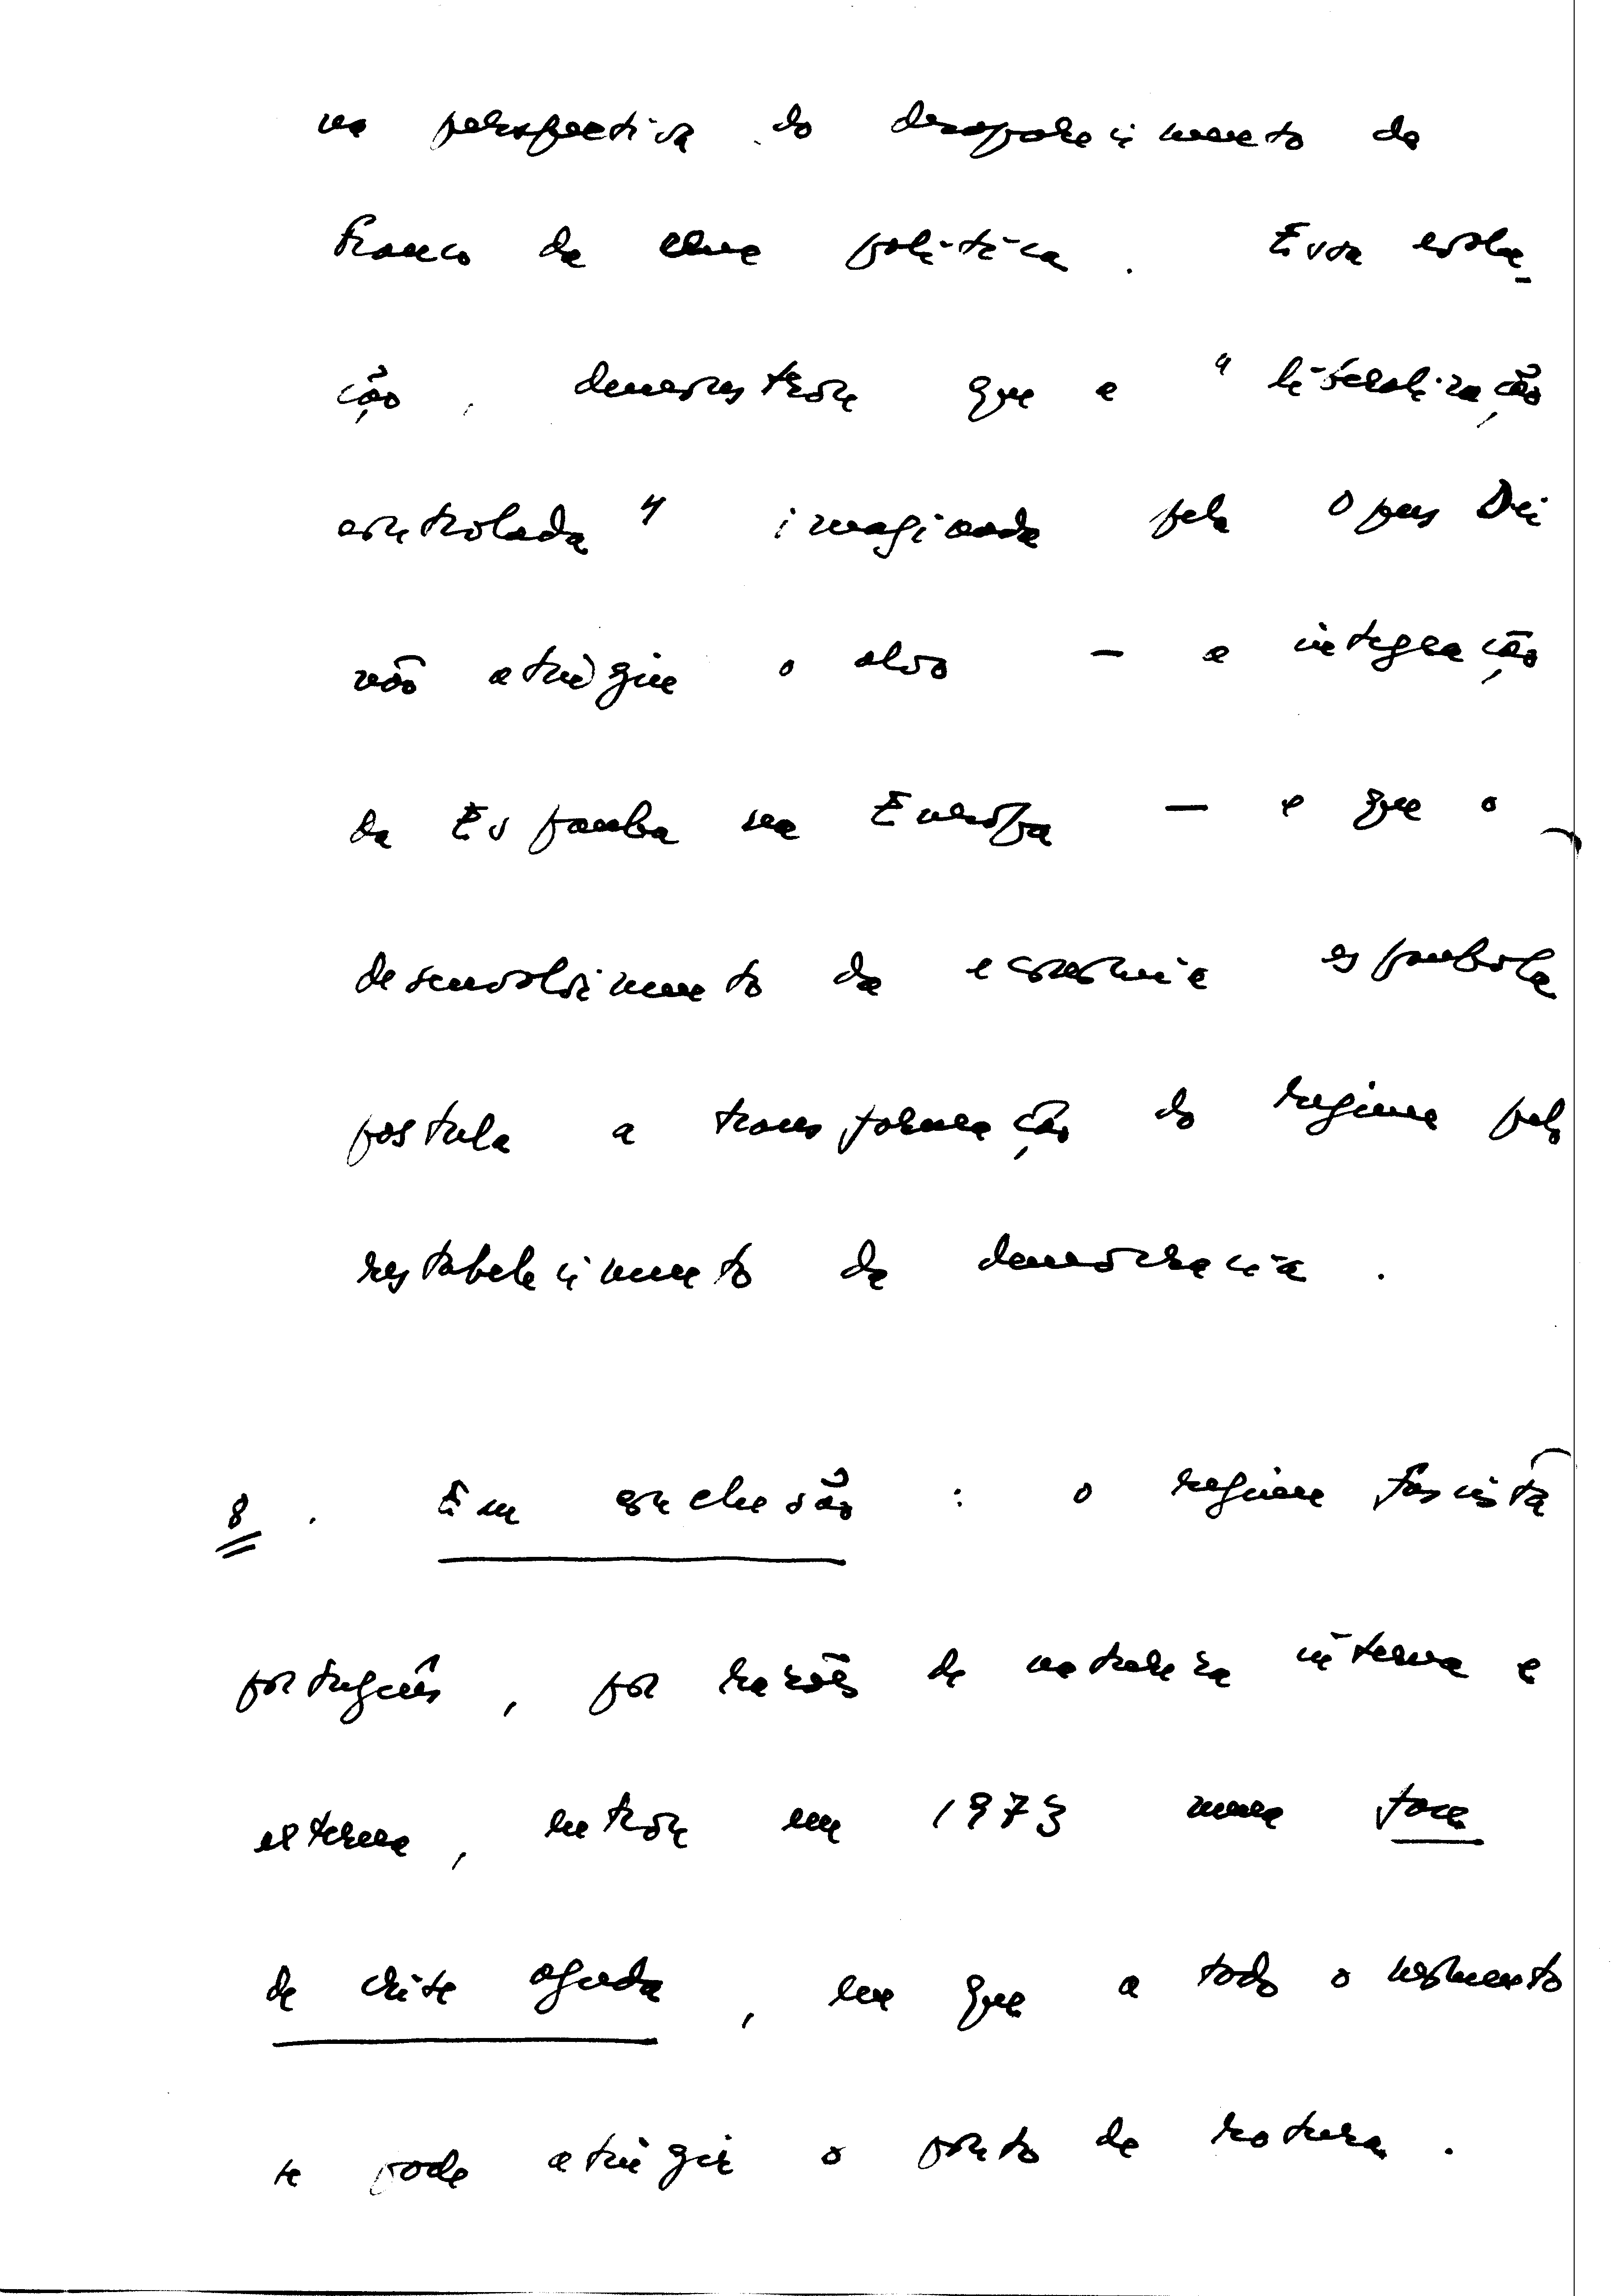 na perspectiva do desaparecimento de
Franco da cena política. Essa evolu-
ção, demonstrou que a "liberalização
controlada" imaginada pela Opus Dei
não atingiu o alvo — a integração
da Espanha na Europa — e que o
desenvolvimento da economia espanhola
postula a transformação do regime pelo
restabelecimento da democracia.
8. Em conclusão: o regime fascista
português, por razões de natureza interna e
externa, entrou em 1973 numa fase
de crise aguda, em que a todo o momento
se pode atingir o ponto de rotura.